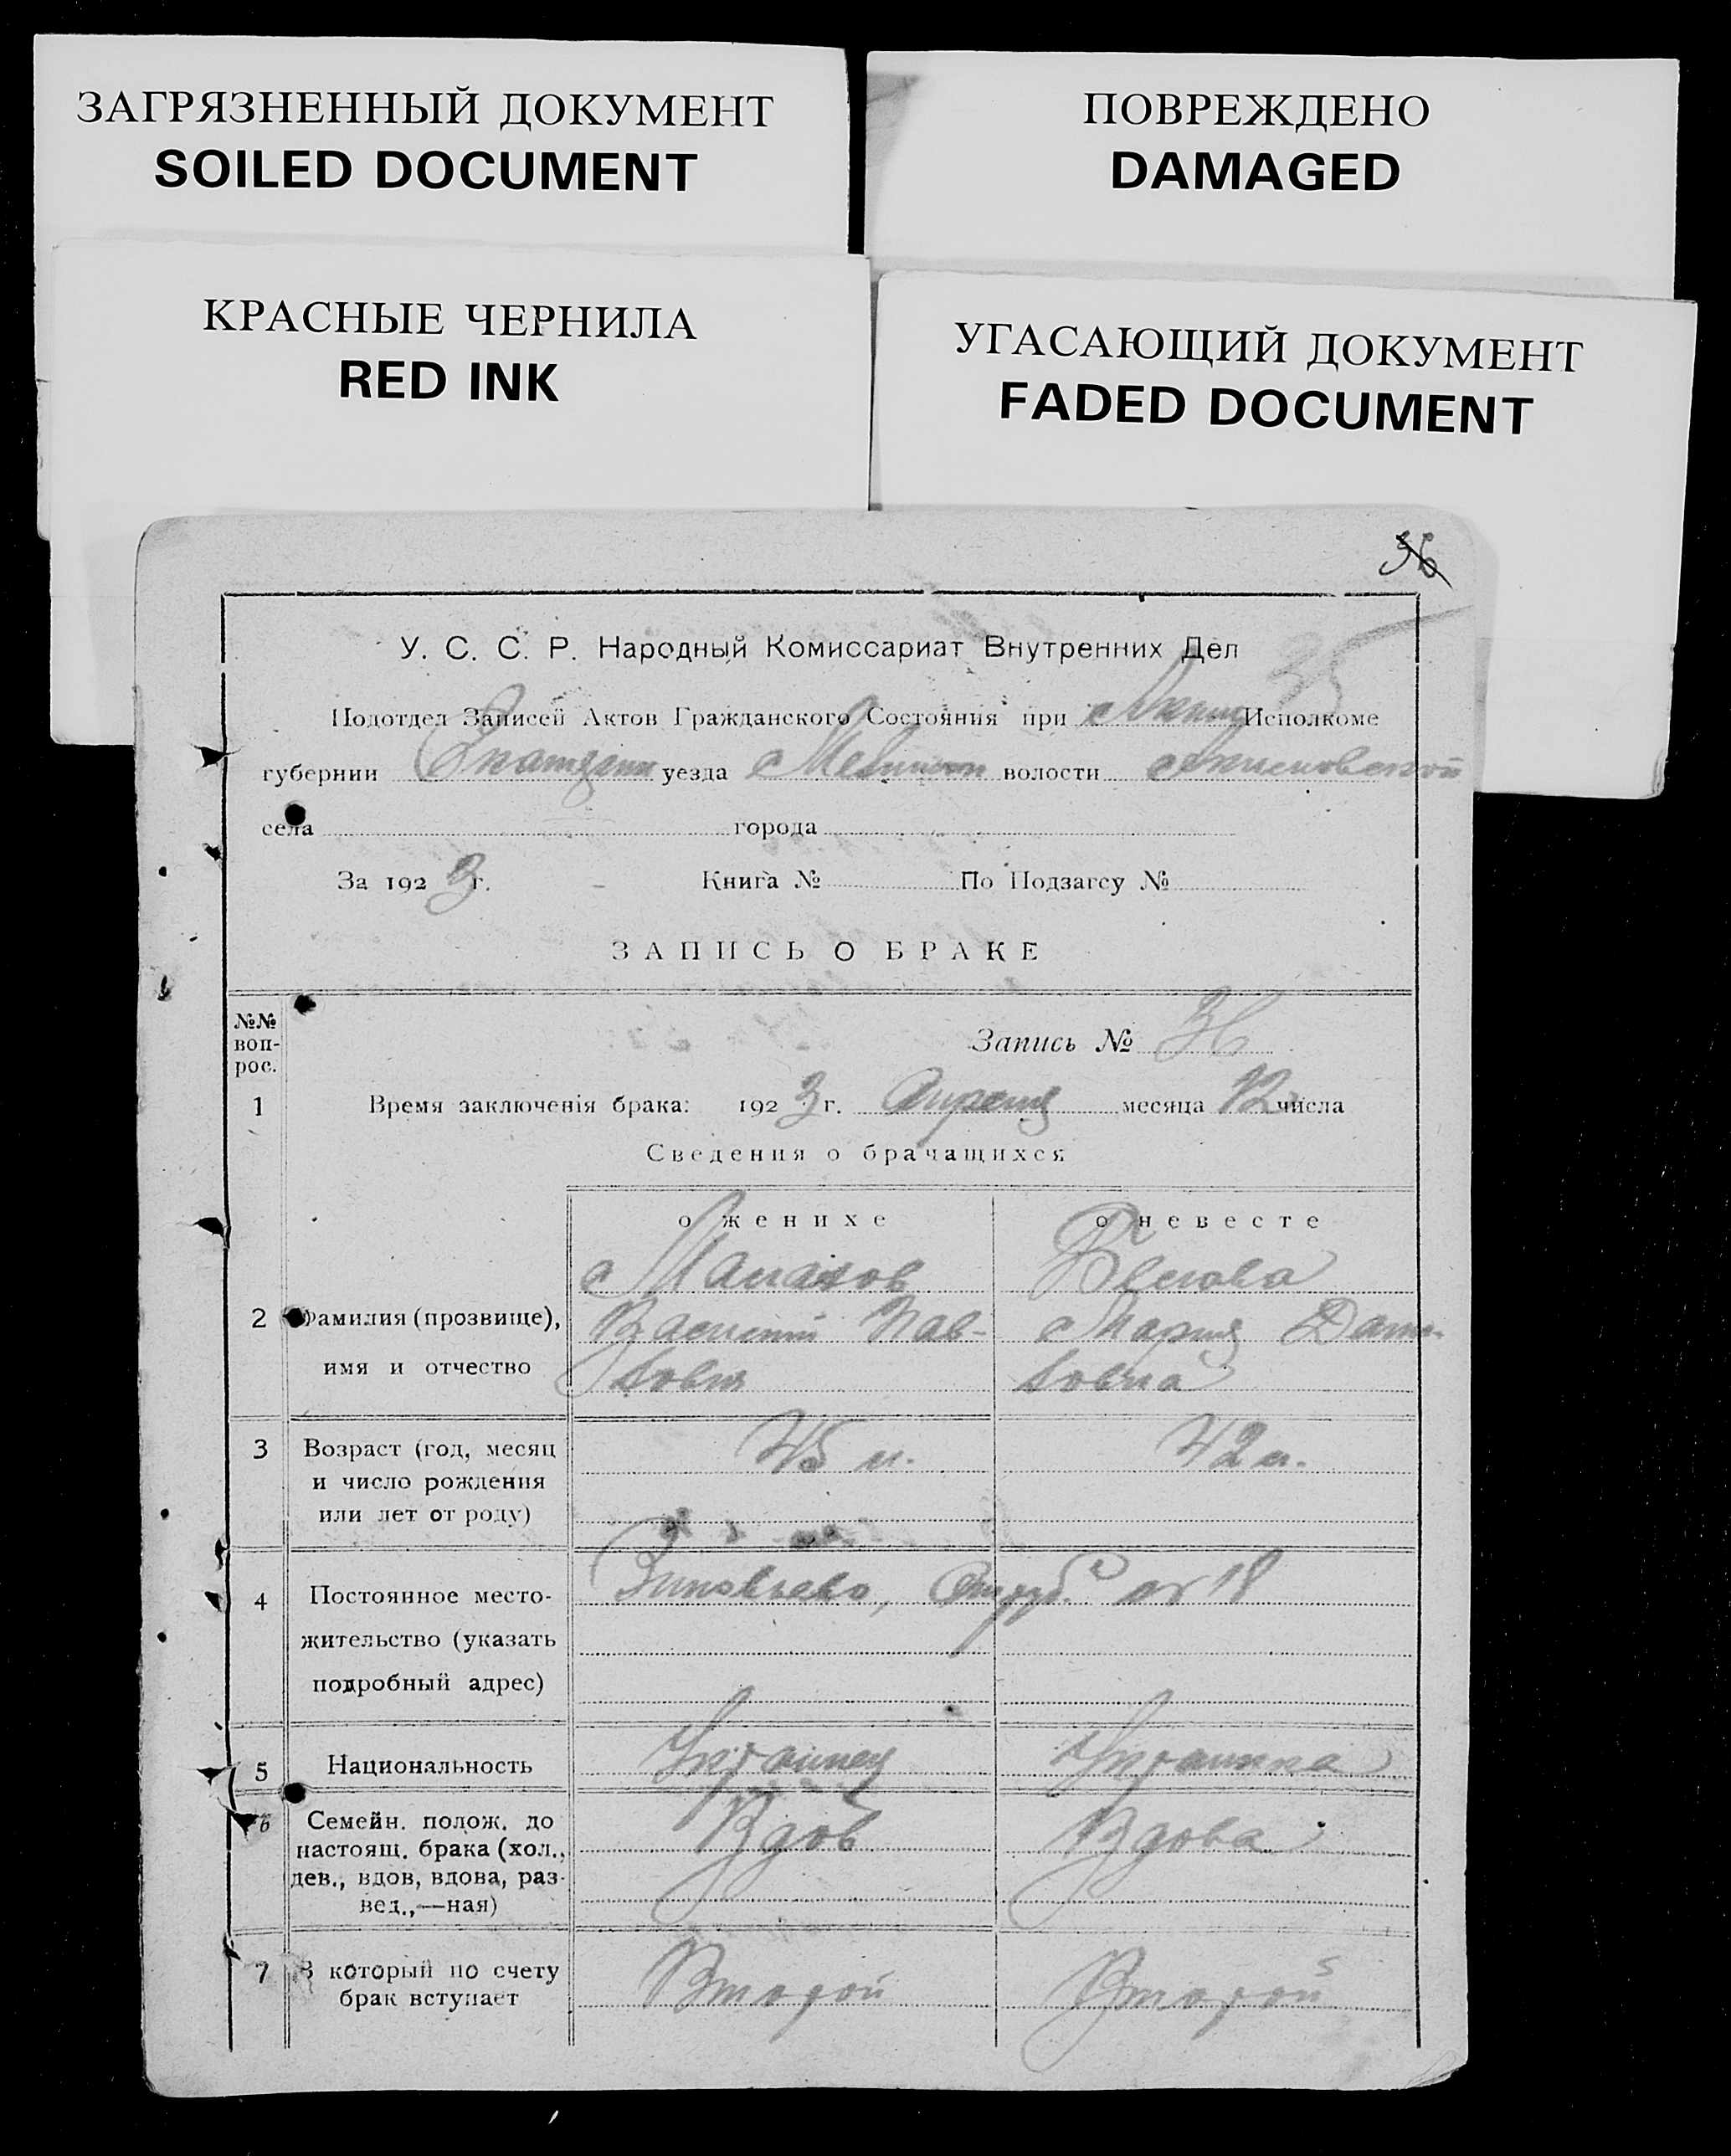 ЗАГРЯЗНЕННЫЙ ДОКУМЕНТ
SOILED DOCUMENT
ПОВРЕЖДЕНО
DAMAGED
КРАСНЫЕ ЧЕРНИЛА
RED INK
УГАСАЮЩИЙ ДОКУМЕНТ
FADED DOCUMENT
36
35
У. С. С. Р. Народный Комиссариат Внутренних Дел
Подотдел Записей Актов Гражданского Состояния при Исполкоме
губернии уезда волости
села города
За 1923 г. Книга № По Подзагсу №
ЗАПИСЬ О БРАКЕ
№№ воп-рос.
Запись № 36
1 Время заключенія брака: 1923 г. Апреля месяца 12 числа
Сведения о брачащихся
о женихе о невесте
2 Фамилия (прозвище),
Василий Пав-
Мария
имя и отчество
ловна
3 Возраст (год, месяц 45 л. 42 л.
и число рождения
или лет от роду)
4 Постоянное место-
18
жительство (указать
подробный адрес)
5 Национальность Украинец Украинка
6 Семейн. полож. до Вдов Вдова
настоящ. брака (хол.,
дев., вдов, вдова, раз-
вед.,—ная)
7 В который по счету Второй Второй
брак вступает